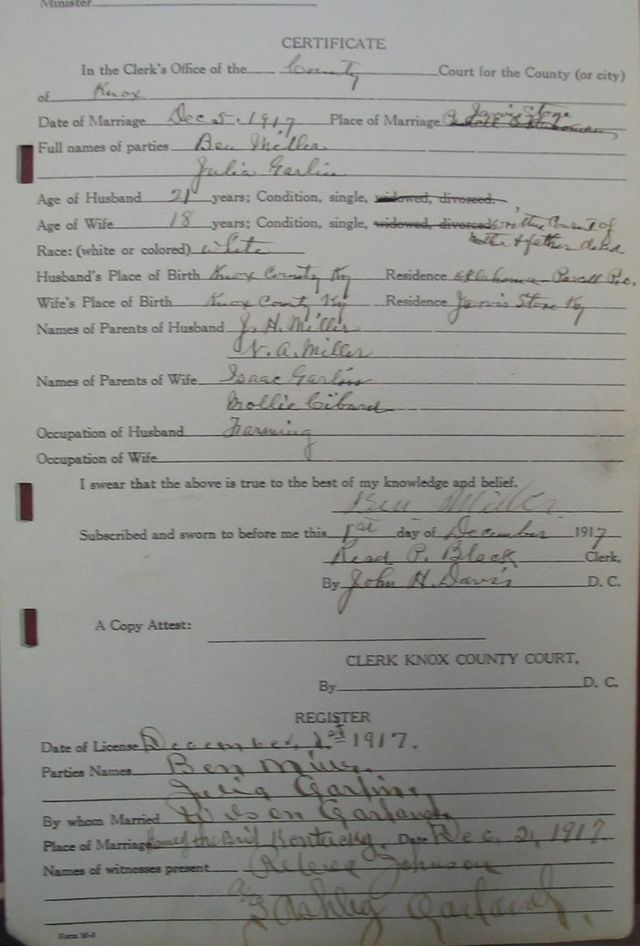 Minister
CERTIFICATE
In the Clerk's Office of the County Court for the County (or city)
of Knox
Date of Marriage Dec 5. 1917 Place of Marriage Jarvis Store
Full names of parties Ben Miller
Julia Garlin
Age of Husband 21 years; Condition, single, widowed, divorced.
Age of Wife 18 years; Condition, single, widowed, divorced with the Consent of
mother & father dead
Race: (white or colored) white
Husband's Place of Birth Knox County Ky Residence Oklahoma P.O.
Wife's Place of Birth Knox County Ky Residence Jarvis Store Ky
Names of Parents of Husband J. H. Miller
N. A. Miller
Names of Parents of Wife Isaac Garlin
Mollie
Occupation of Husband Farming
Occupation of Wife
I swear that the above is true to the best of my knowledge and belief.
Ben Miller
Subscribed and sworn to before me this 1st day of December 1917
Read P. Black Clerk,
By John H. Davis D. C.
A Copy Attest:
CLERK KNOX COUNTY COURT,
By D. C.
REGISTER
Date of License December 1st 1917.
Parties Names Ben Miller
Julia Garlin
By whom Married Wilson Garland
Place of Marriage of the Brid Kentucky. Date Dec. 2, 1917
Names of witnesses present Johnson
Ashley Garland.
Form